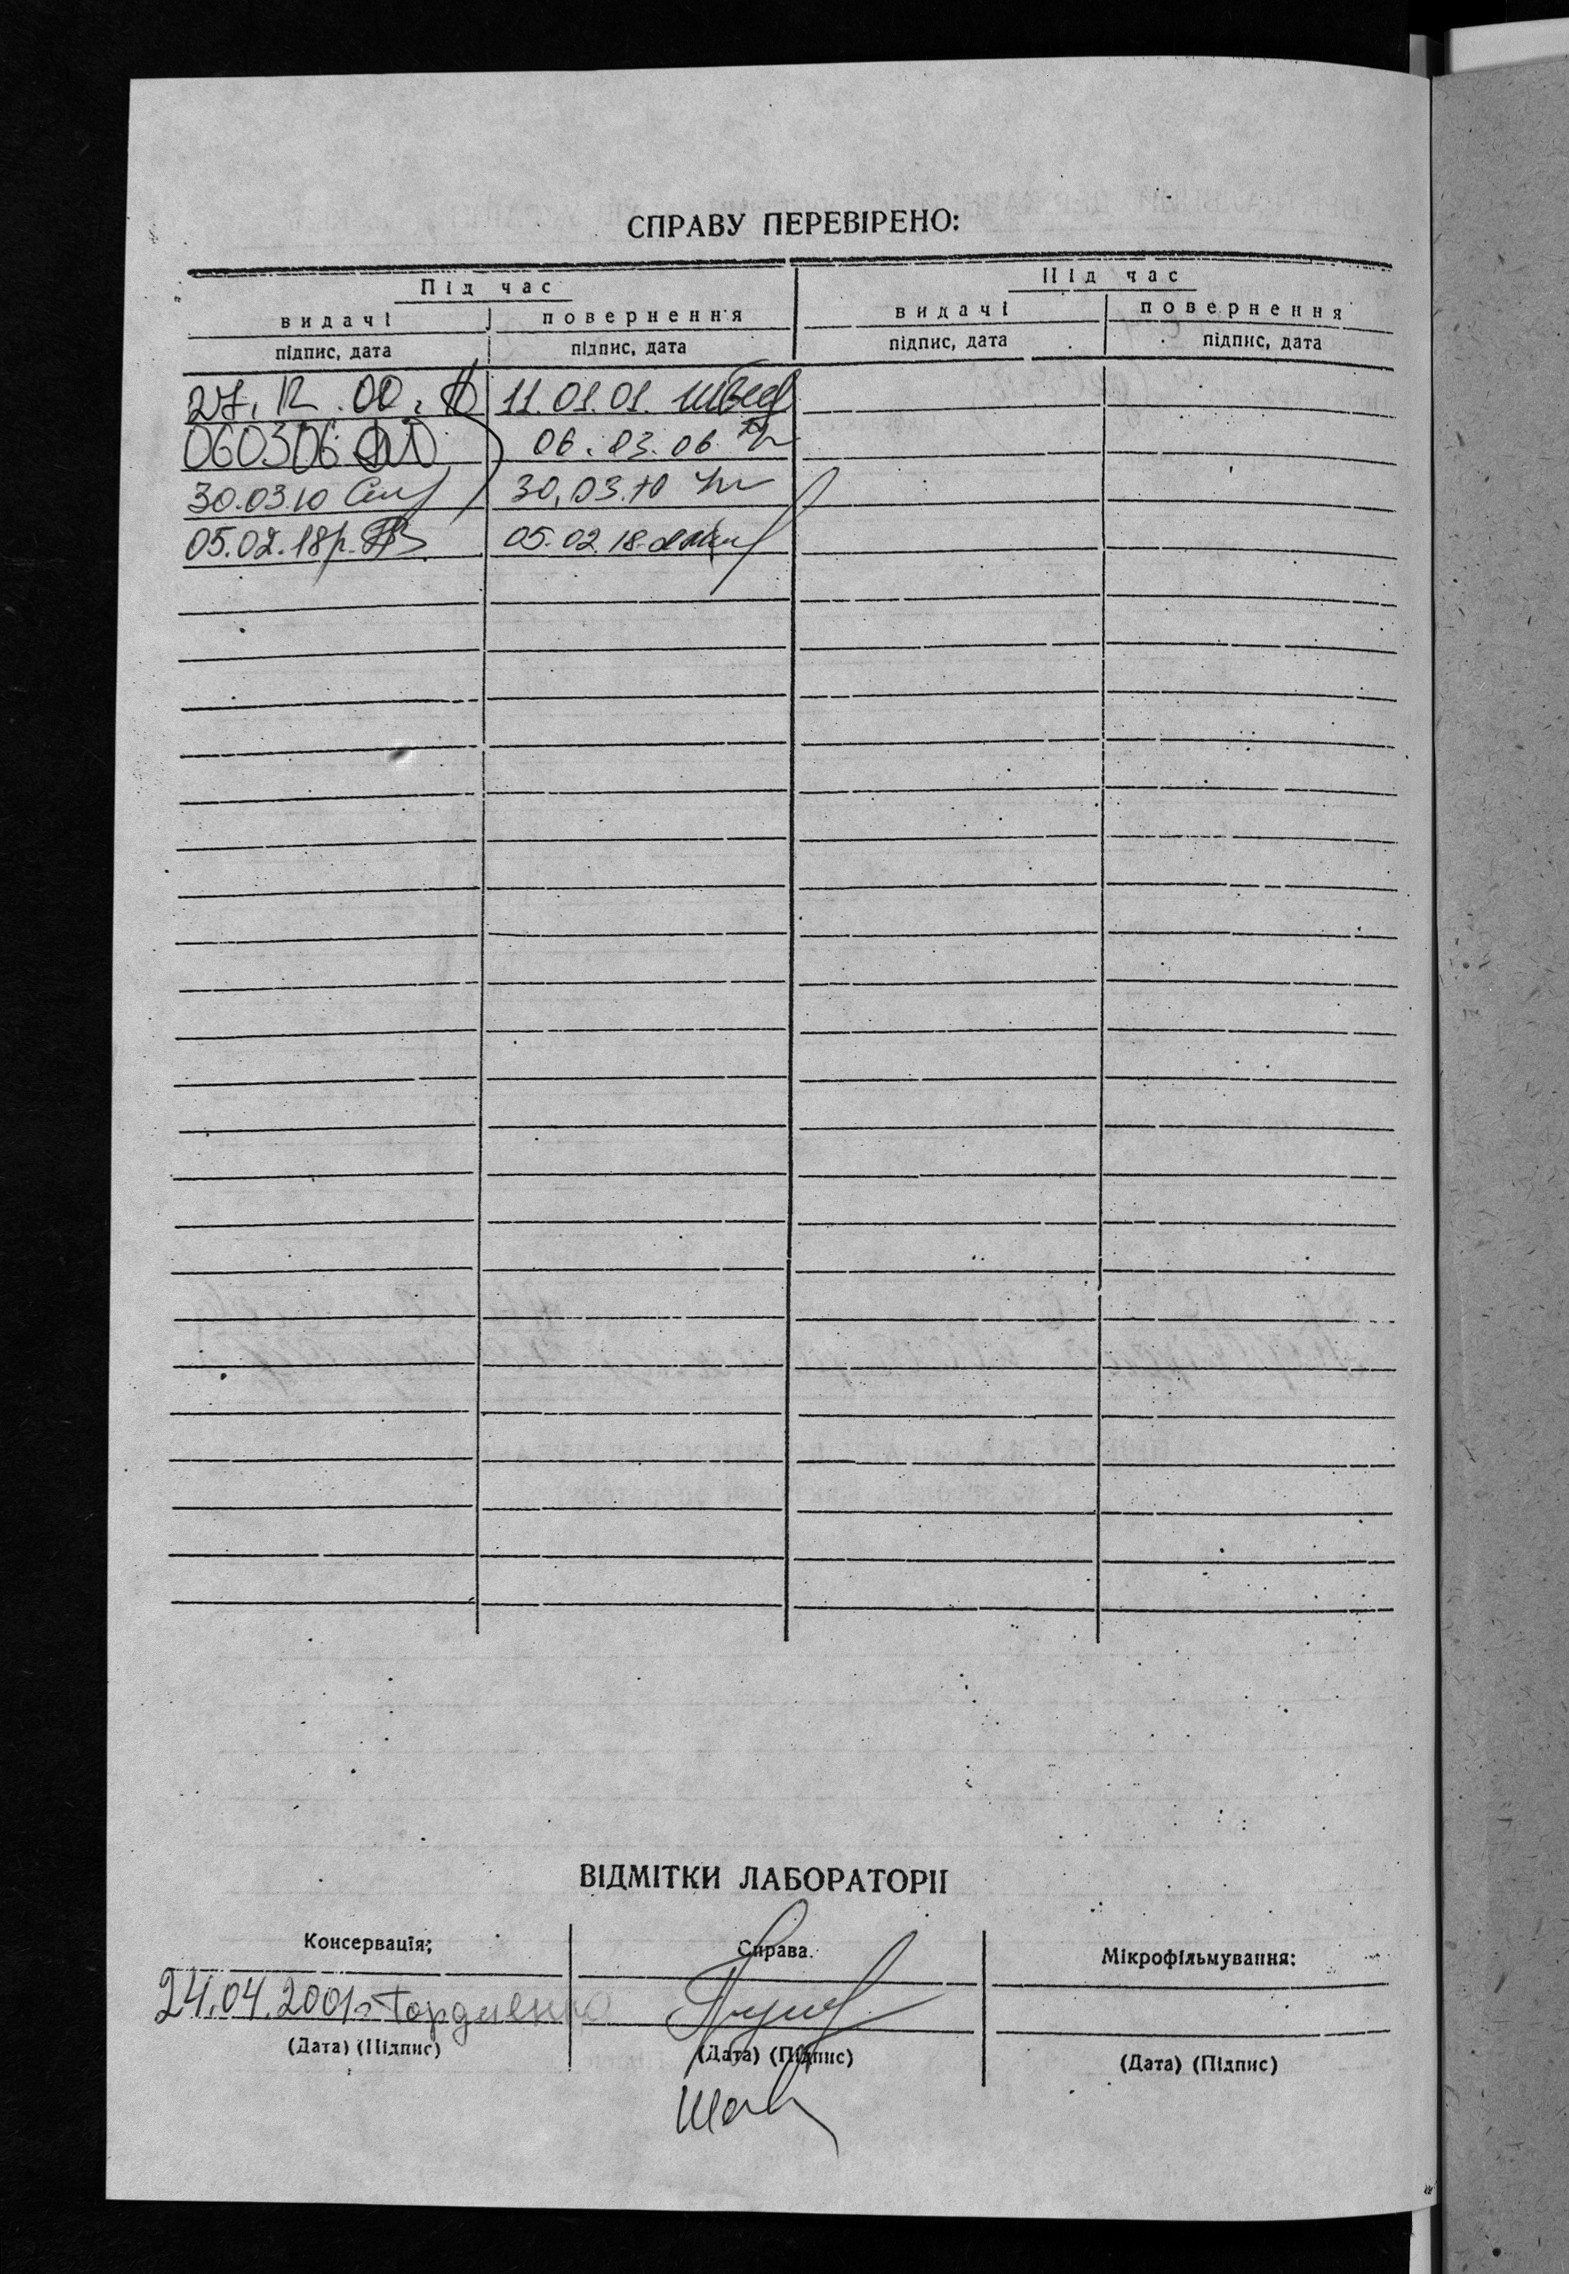 СПРАВУ ПЕРЕВІРЕНО:
Під час Під час
видачі повернення видачі повернення
підпис, дата підпис, дата підпис, дата підпис, дата
27. 12. 00. 11.01.01.
060306 06.03.06
30.03.10 30.03.10
05.02.18р. 05.02.18.
ВІДМІТКИ ЛАБОРАТОРІІ
Консервація; Справа. Мікрофільмування:
24.04.2001г Гордиенко
(Дата) (Підпис) (Дата) (Підпис) (Дата) (Підпис)